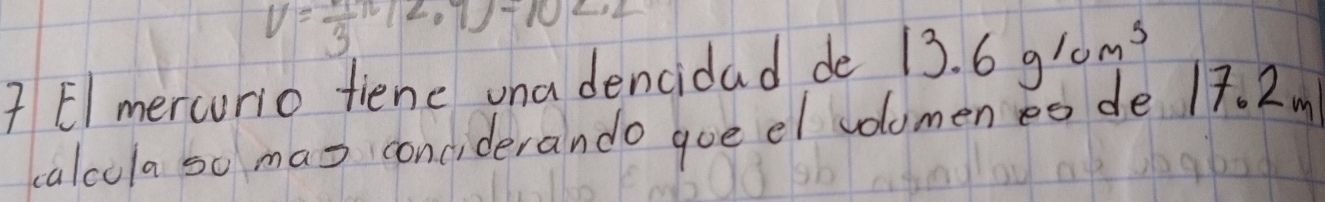 V = 4/3 π (2.9) = 102.2
7 El mercurio tiene una dencidad de 13.6 g/cm³
calcula su mas conciderando que el volumen es de 17.2 ml